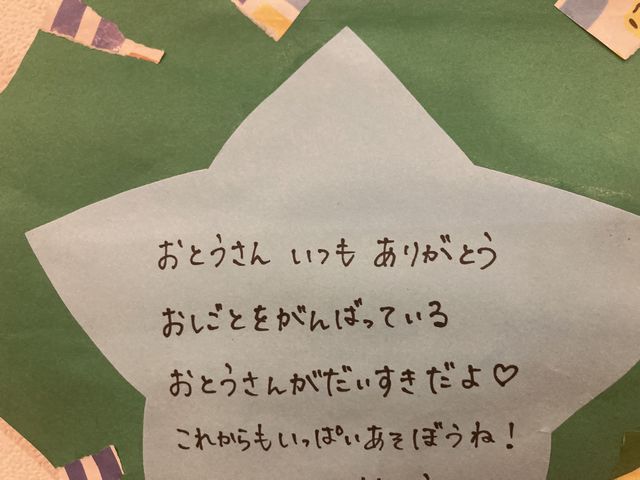 おとうさん いつも ありがとう
おしごとをがんばっている
おとうさんがだいすきだよ♡
これからもいっぱいあそぼうね!